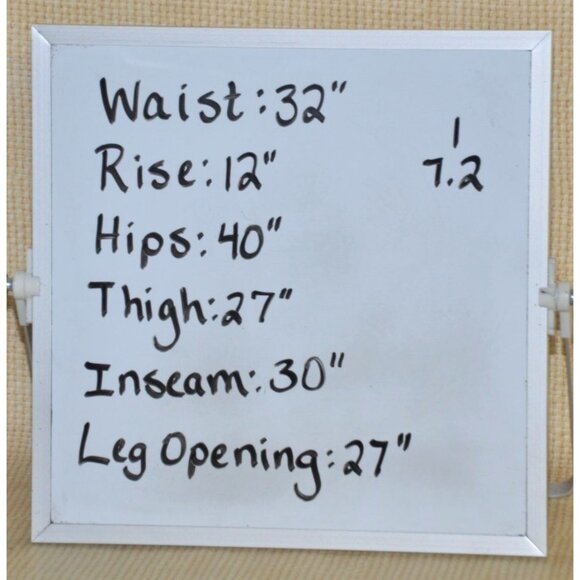 Waist: 32"
Rise: 12"
Hips: 40"
Thigh: 27"
Inseam: 30"
Leg Opening: 27"
1
7.2